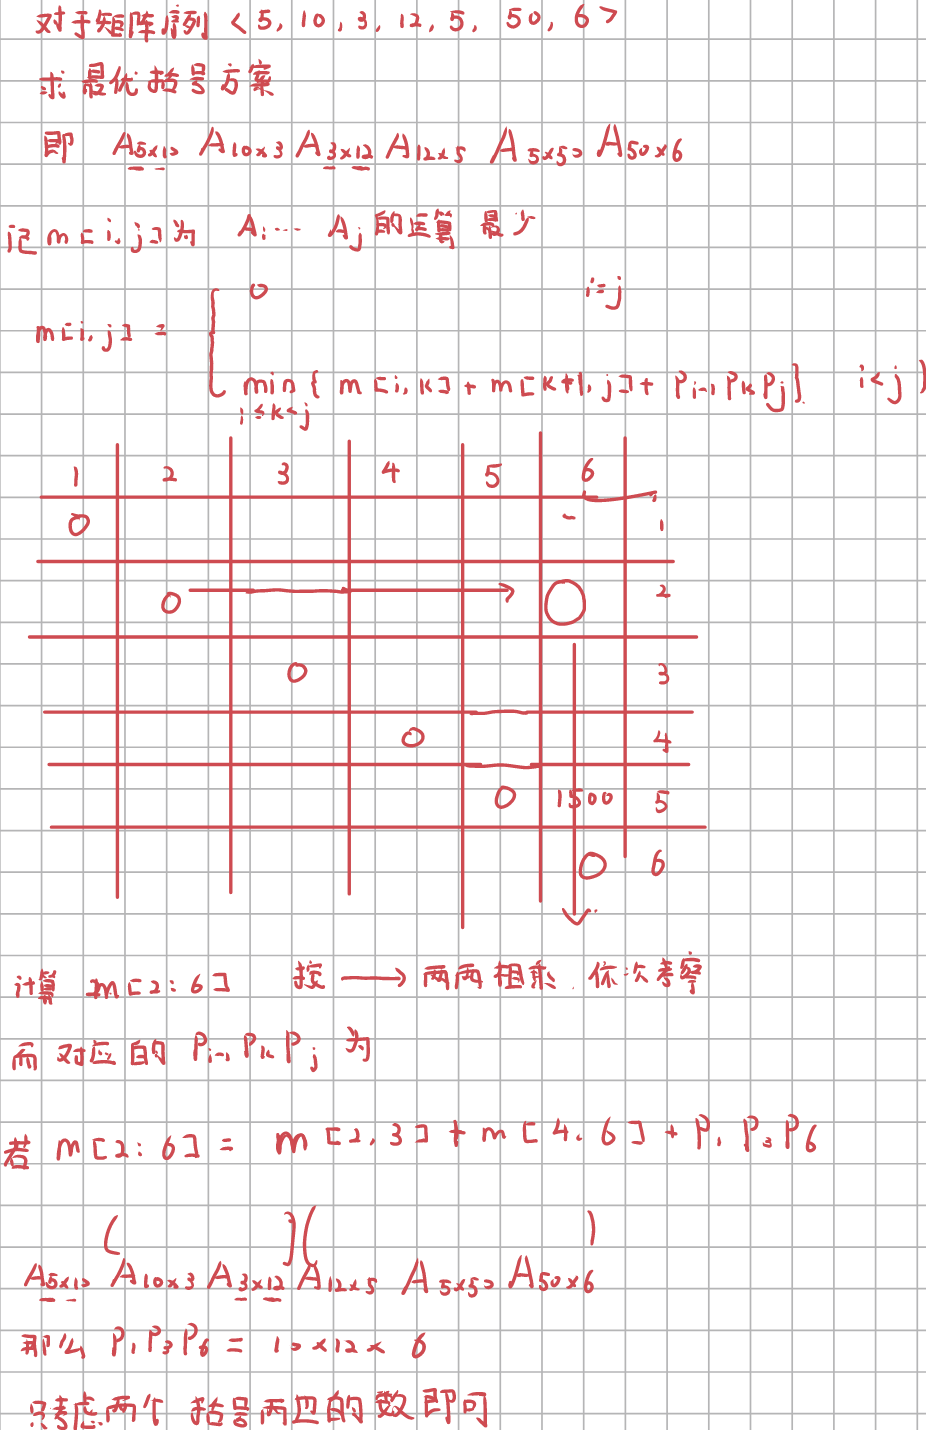 对于矩阵序列 <5, 10, 3, 12, 5, 50, 6>
求最优括号方案
即 A5×10 A10×3 A3×12 A12×5 A5×50 A50×6
记 m[i,j] 为 Ai... Aj 的运算最少
0 i=j
m[i,j] =
min{ m[i,k] + m[k+1,j] + Pi-1 Pk Pj} i<j
i≤k<j
1 2 3 4 5 6
0 1
0 2
0 3
0 4
0 1500 5
0 6
计算 m[2:6] 按 → 两两相乘 依次考察
而对应的 Pi-1 Pk Pj 为
若 m[2:6] = m[2,3] + m[4,6] + P1 P3 P6
( )( )
A5×10 A10×3 A3×12 A12×5 A5×50 A50×6
那么 P1P3P6 = 10×12×6
只考虑两个括号两边的数即可